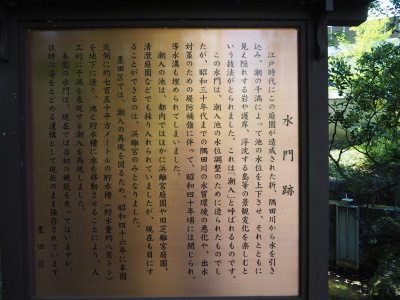 水門跡
江戸時代にこの庭園が造成された折、隅田川から水を引き
込み、潮の干満によって池の水位を上下させ、それとともに
見え隠れする岩や護岸、浮沈する島等の景観変化を楽しむと
いう技法がとられました。これは「潮入」と呼ばれるものです。
この水門は、潮入池の水位調整のために造られたものでし
たが、昭和三十年代までの隅田川の水質環境の悪化や、出水
対策のための堤防補強に伴って、昭和四十年頃には閉じられ、
導水溝も埋められてしまいました。
潮入の池は、都内ではほかに浜離宮庭園や旧芝離宮庭園、
清澄庭園などでも採り入れられていましたが、現在も目にす
ることができるのは、浜離宮のみとなりました。
墨田区では、潮入の再現を図るため、昭和四十六年に本園
北側に約七百五十平方メートルの貯水槽(貯水量約八百トン)
を地下に造り、池と貯水槽に水を移動させることにより、人
工的に干満を表現する潮入を再現しました。
本園の水門は、現在では当初の機能を失ってはいますが、
往時の姿をとどめる遺構として現状のまま保存されています。
墨田区